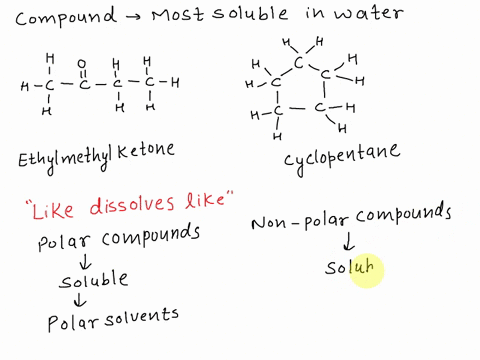 Compound → Most soluble in water
H O H H
H-C-C-C-C-H
H H H
Ethylmethyl Ketone
H H
H C H
H-C C-H
H-C C-H
H H
Cyclopentane
"Like dissolves like"
Polar compounds
↓
Soluble
↓
Polar solvents
Non-polar compounds
↓
Solub